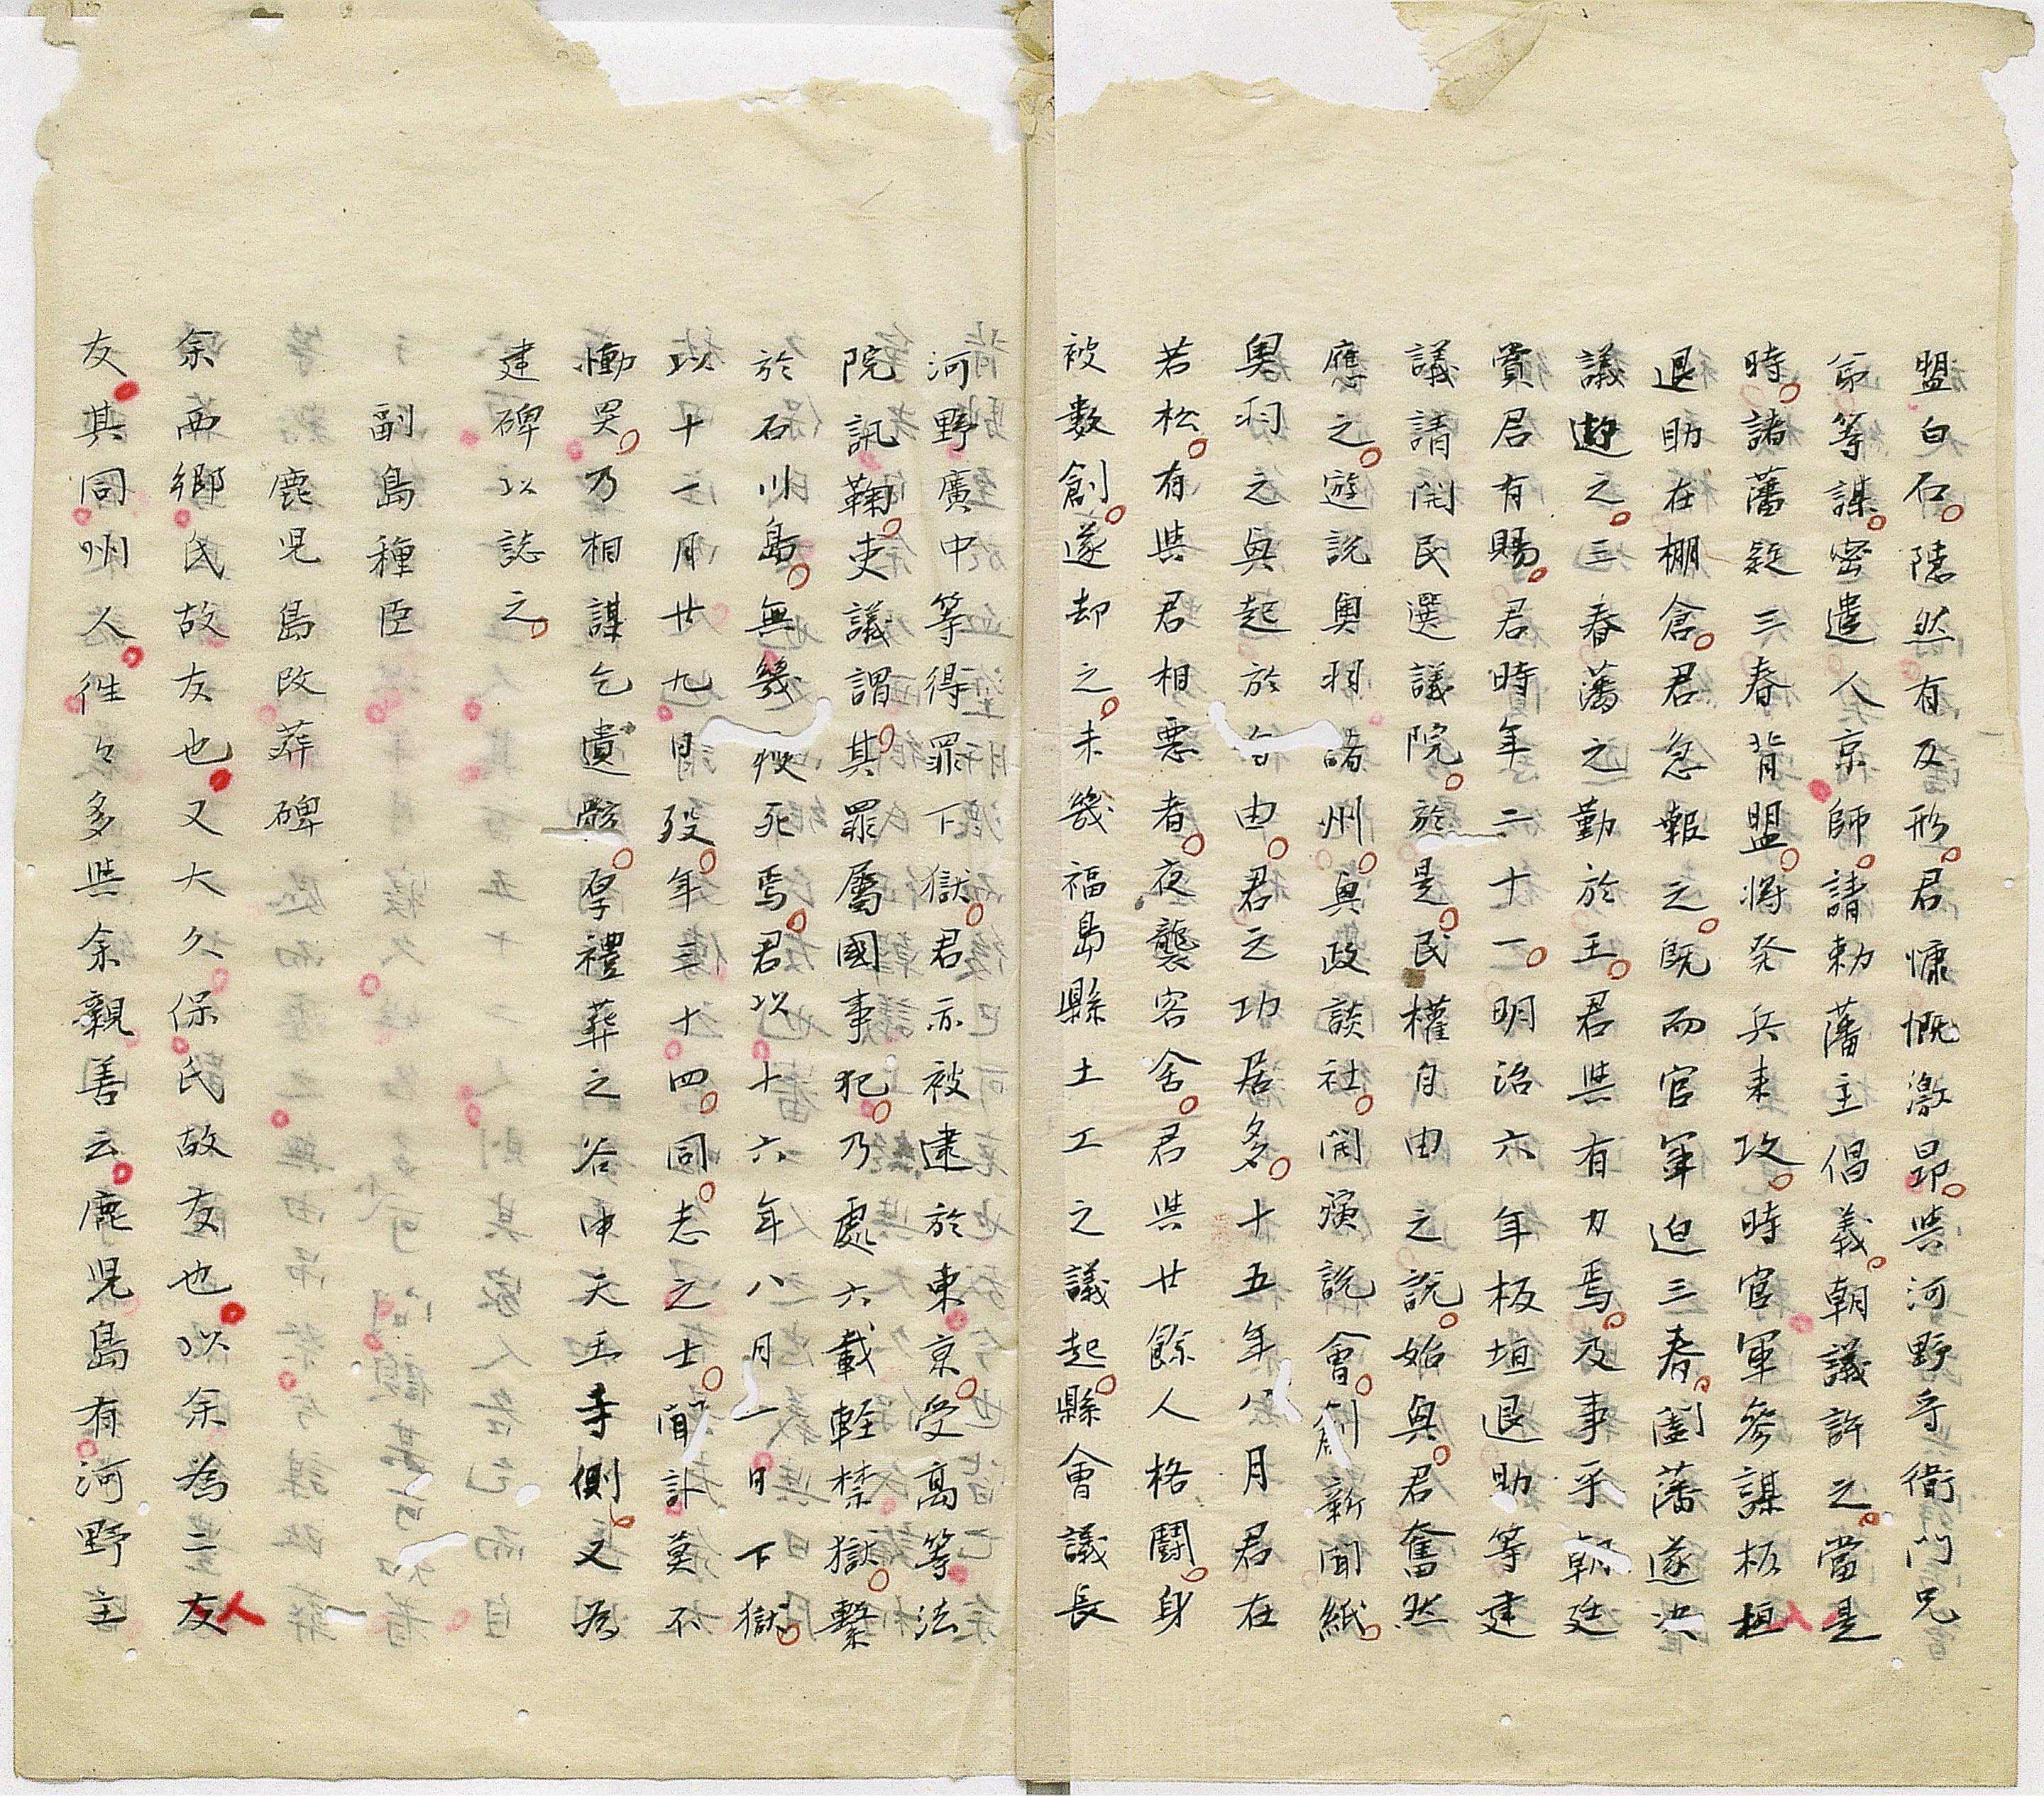 盟白石。隠然有反形。君慷慨激昂。与河野守衛門兄
弟等謀。密遣人京師。請勅藩主倡義。朝議許之。當是
時。諸藩疑三春背盟。将発兵来攻。時官軍参謀板垣
退助在棚倉。君急報之。既而官軍迫三春。闔藩遂决
議迎之。三春藩之勤於王。君与有力焉。及事平朝廷
賞君有賜。君時年二十一。明治六年板垣退助等建
議請開民選議院。於是。民權自由之說。始興。君奮然
應之。遊説奥羽諸州。興政談社。開演説會。創新聞紙。
奥羽之興起於自由。君之功居多。十五年八月君在
若松。有与君相悪者。夜襲客舎。君与廿餘人格闘。身
被数創。遂却之。未幾福島縣土工之議起。縣會議長
河野廣中等得罪下獄。君亦被逮於東京。受高等法
院訊鞠。吏議謂。其罪屬國事犯。乃處六載軽禁獄。繋
於石川島。無幾瘐死焉。君以十六年八月一日下獄。
以十一月廿九日殁。年三十四。同志之士。聞訃莫不
慟哭。乃相謀乞遺骸。厚禮葬之谷中天王寺側。又為
建碑以誌之。
副島種臣
鹿児島改葬碑
余西郷氏故友也。又大久保氏故友也。以余為二友
友。其同州人。徃々多与余親善云。鹿児島有河野主